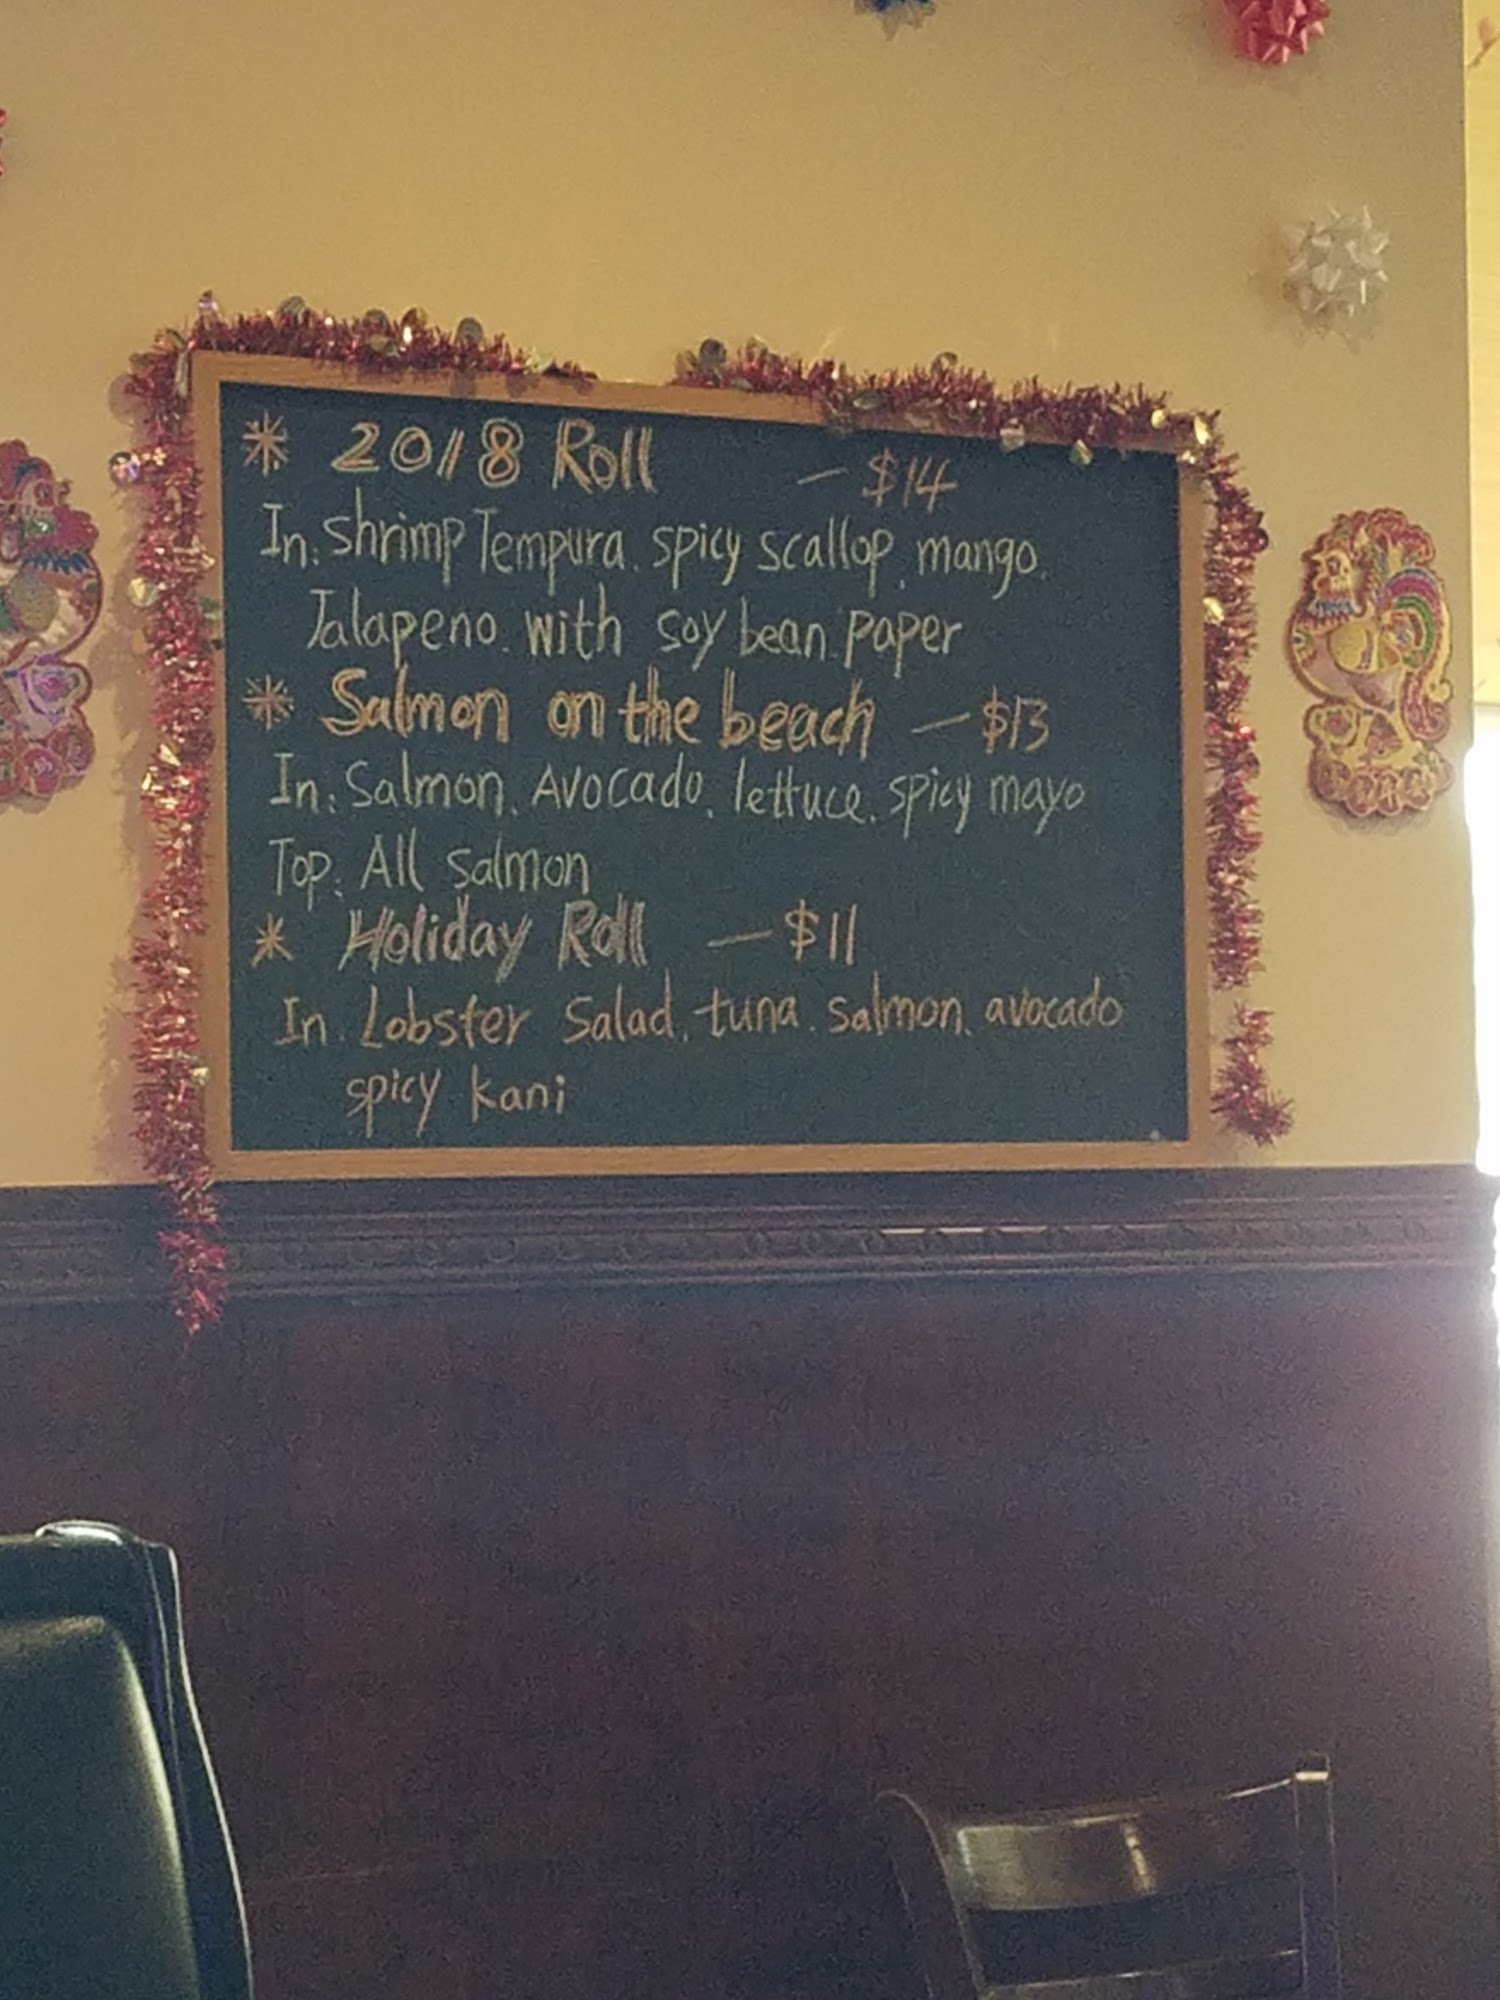 * 2018 Roll — $14
In: Shrimp Tempura. spicy scallop, mango.
Jalapeno. with soy bean paper
* Salmon on the beach — $13
In: Salmon, Avocado, lettuce. spicy mayo
Top: All salmon
* Holiday Roll — $11
In. Lobster Salad, tuna. salmon. avocado
spicy kani